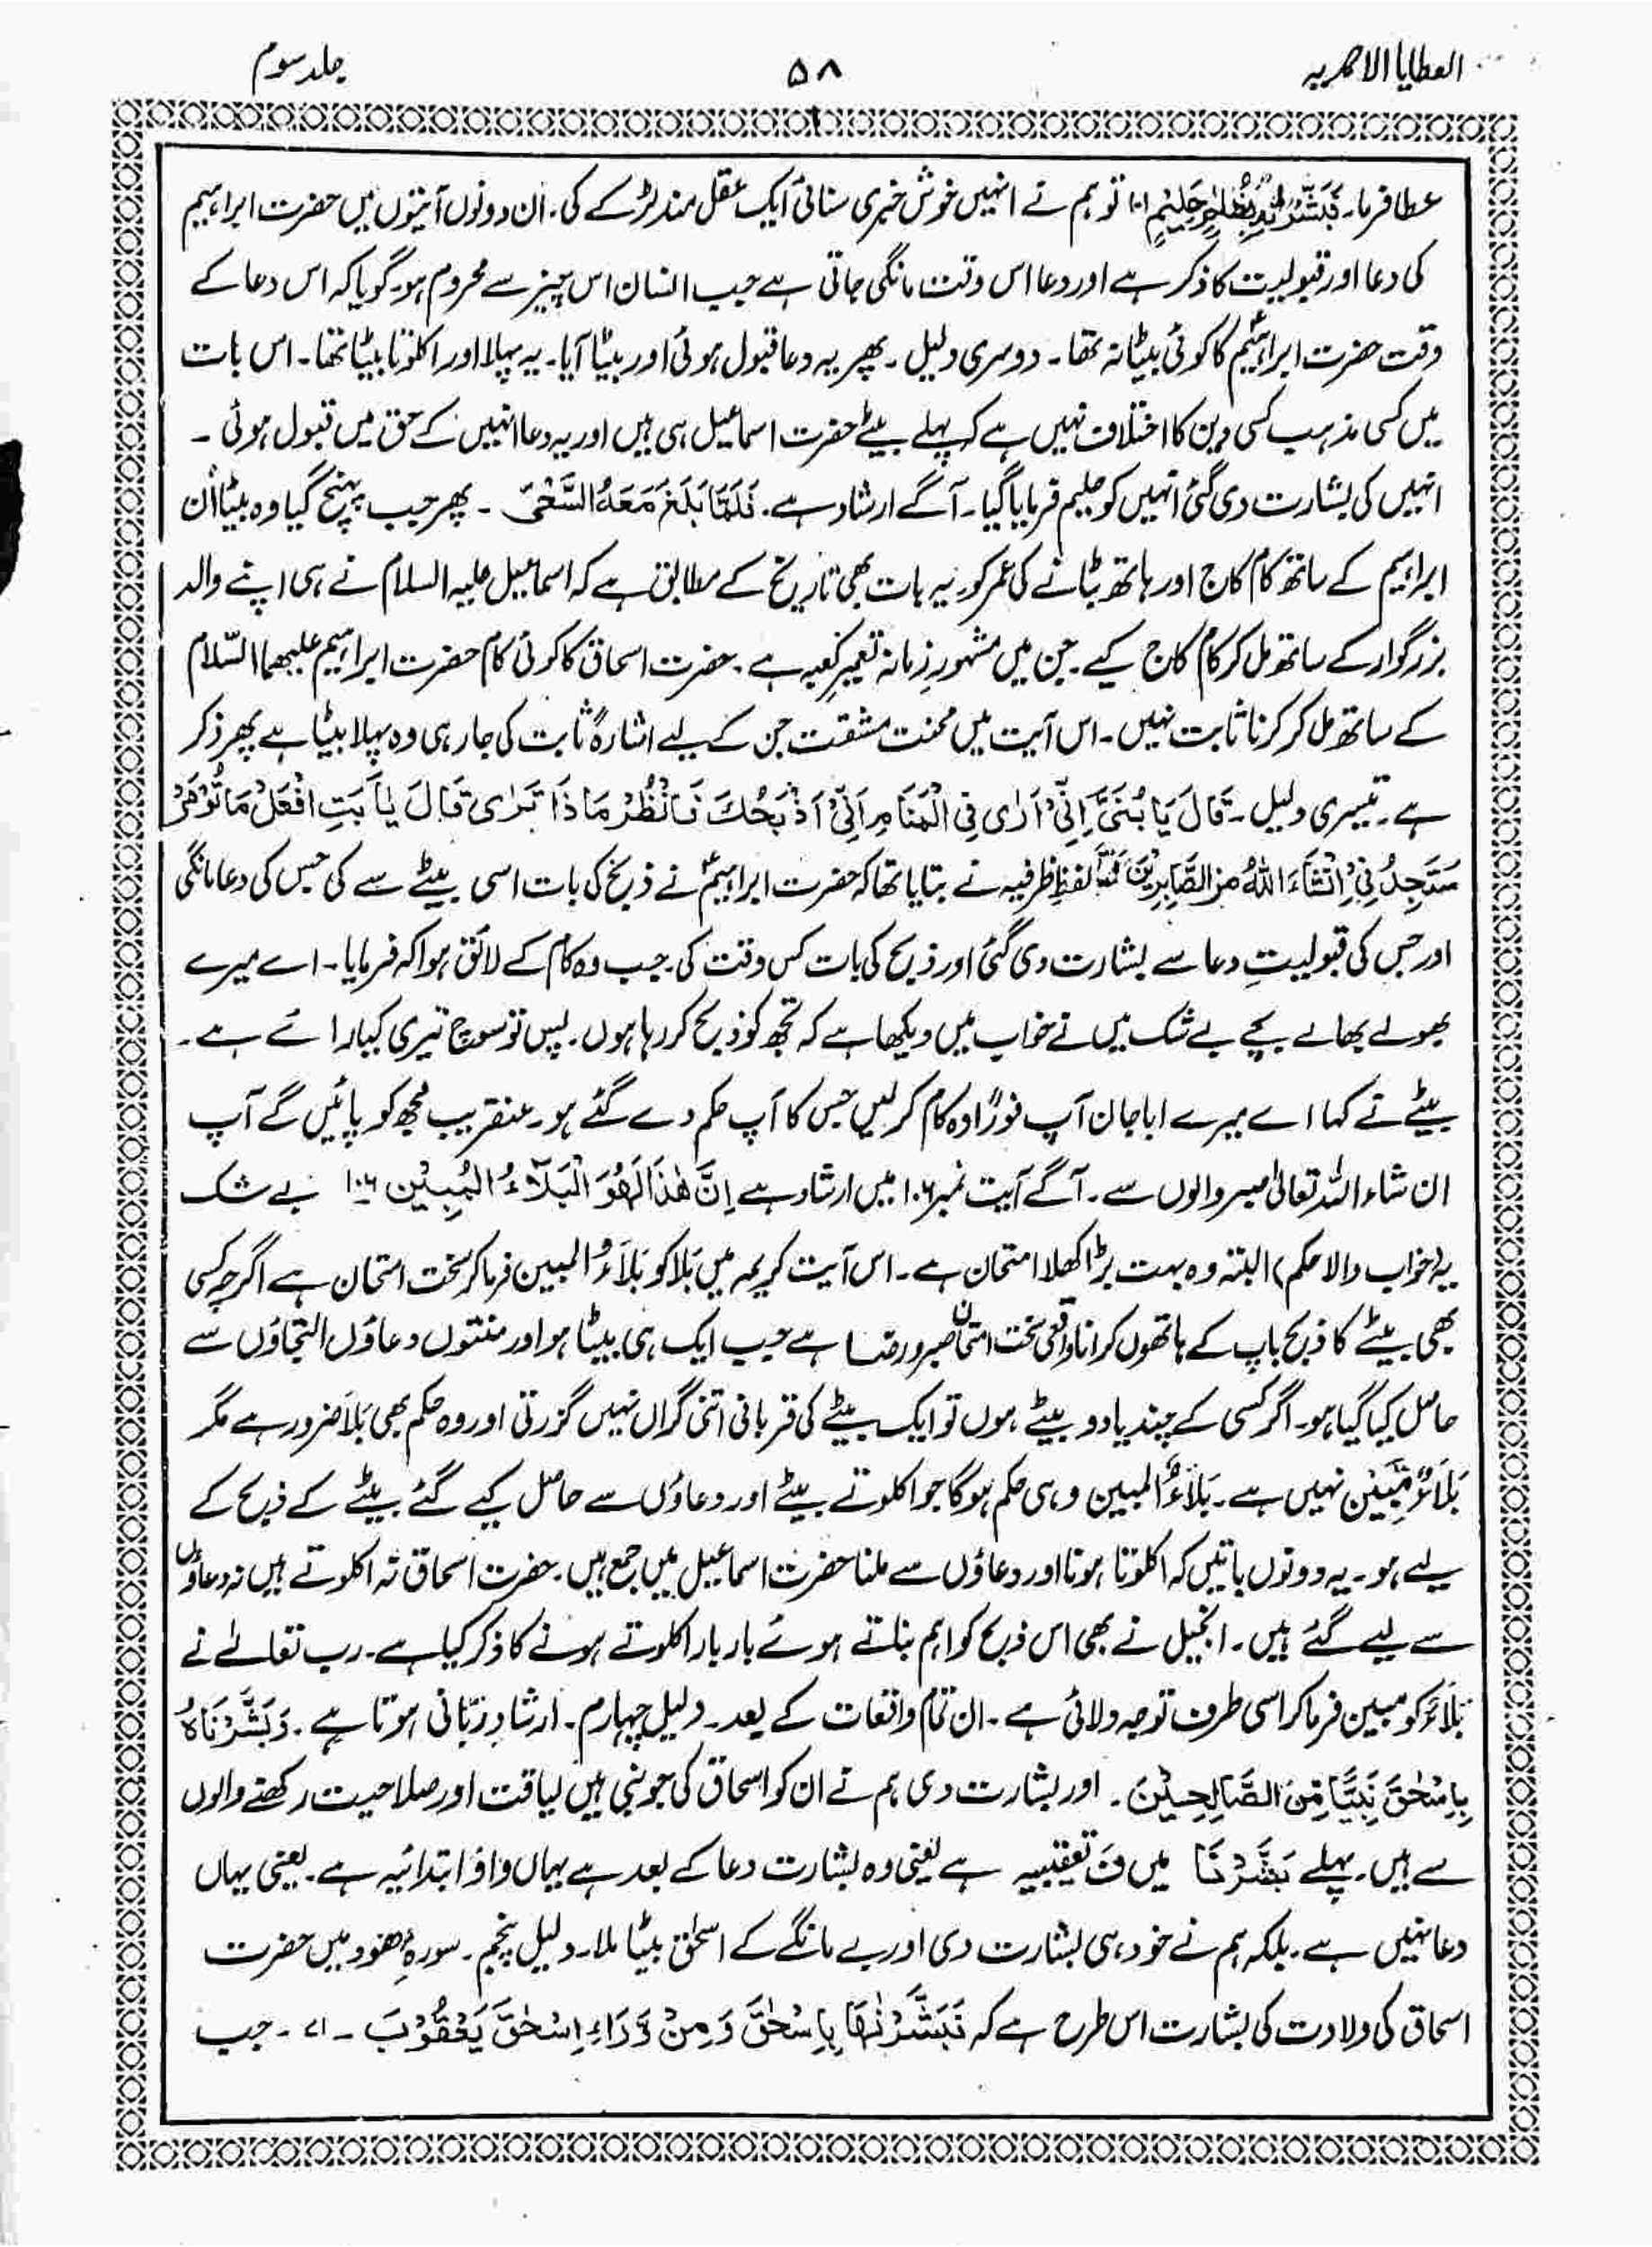 العطایا الاحمدیہ
۵۸
جلد سوم
عطا فرما۔ فَبَشَّرْنَاهُ بِغُلَامٍ حَلِيْمٍ ۱۰۱ تو ہم نے انہیں خوش خبری سنائی ایک عقل مند لڑکے کی۔ ان دونوں آیتوں میں حضرت ابراہیم
کی دعا اور قبولیت کا ذکر ہے اور دعا اس وقت مانگی جاتی ہے جب انسان اس چیز سے محروم ہو۔ گویا کہ اس دعا کے
وقت حضرت ابراہیمؑ کا کوئی بیٹا نہ تھا۔ دوسری دلیل۔ پھر یہ دعا قبول ہوئی اور بیٹا آیا۔ یہ پہلا اور اکلوتا بیٹا تھا۔ اس بات
میں کسی مذہب کسی دین کا اختلاف نہیں ہے کہ پہلے بیٹے حضرت اسماعیل ہی ہیں اور یہ دعا انہیں کے حق میں قبول ہوئی۔
انہیں کی بشارت دی گئی انہیں کو حلیم فرمایا گیا۔ آگے ارشاد ہے۔ فَلَمَّا بَلَغَ مَعَهُ السَّعْیَ ۔ پھر جب پہنچ گیا وہ بیٹا اُن
ابراہیم کے ساتھ کام کاج اور ہاتھ بٹانے کی عمر کو۔ یہ بات بھی تاریخ کے مطابق ہے کہ اسماعیل علیہ السلام نے ہی اپنے والد
بزرگوار کے ساتھ مل کر کام کاج کیے۔ جن میں مشہورِ زمانہ تعمیرِ کعبہ ہے۔ حضرت اسحاق کا کوئی کام حضرت ابراہیم علیھما السّلام
کے ساتھ مل کر کرنا ثابت نہیں۔ اس آیت میں محنت مشقت جن کے لیے اشارۃً ثابت کی جا رہی وہ پہلا بیٹا ہے پھر ذکر
ہے۔ تیسری دلیل۔ قَالَ يَا بُنَيَّ اِنِّيْ اَرٰى فِي الْمَنَامِ اَنِّيْ اَذْبَحُكَ فَانْظُرْ مَا ذَا تَرٰى قَالَ يٰاَبَتِ افْعَلْ مَا تُؤْمَرْ
سَتَجِدُنِيْ اِنْشَاءَ اللّٰهُ مِنَ الصَّابِرِيْنَ فَلَمَّا لفظِ ظرفیہ نے بتایا تھا کہ حضرت ابراہیمؑ نے ذبح کی بات اسی بیٹے سے کی جس کی دعا مانگی
اور جس کی قبولیتِ دعا سے بشارت دی گئی اور ذبح کی بات کس وقت کی۔ جب وہ کام کے لائق ہوا کہ فرمایا۔ اے میرے
بھولے بھالے بچے بے شک میں نے خواب میں دیکھا ہے کہ تجھ کو ذبح کر رہا ہوں۔ پس تو سوچ تیری کیا رائے ہے۔
بیٹے نے کہا اے میرے ابا جان آپ فوراً وہ کام کر لیں جس کا آپ حکم دے گئے ہو۔ عنقریب مجھ کو پائیں گے آپ
ان شاء اللہ تعالیٰ صبر والوں سے۔ آگے آیت نمبر ۱۰۶ میں ارشاد ہے اِنَّ هٰذَا لَهُوَ الْبَلَآءُ الْمُبِيْن ۱۰۶ بے شک
یہ (خواب والا حکم) البتہ وہ بہت بڑا کھلا امتحان ہے۔ اس آیت کریمہ میں بَلا کو بَلَاءُ المبین فرما کر سخت امتحان ہے اگرچہ کسی
بھی بیٹے کا ذبح باپ کے ہاتھوں کرانا واقعی سخت امتحان صبر و رضا ہے جب ایک ہی بیٹا ہو اور منتوں دعاؤں التجاؤں سے
حاصل کیا گیا ہو۔ اگر کسی کے چند یا دو بیٹے ہوں تو ایک بیٹے کی قربانی اتنی گراں نہیں گزرتی اور وہ حکم بھی بَلا ضرور ہے مگر
بَلَاءٌ مُّبِیْن نہیں ہے۔ بَلَاءُ المبین وہی حکم ہوگا جو اکلوتے بیٹے اور دعاؤں سے حاصل کیے گئے بیٹے کے ذبح کے
لیے ہو۔ یہ دونوں باتیں کہ اکلوتا ہونا اور دعاؤں سے ملنا حضرت اسماعیل میں جمع ہیں۔ حضرت اسحاق نہ اکلوتے ہیں نہ دعاؤں
سے لیے گئے ہیں۔ انجیل نے بھی اس ذبح کو اہم بناتے ہوئے بار بار اکلوتے ہونے کا ذکر کیا ہے۔ رب تعالےٰ نے
بَلَاءُ کو مبین فرما کر اسی طرف توجہ دلائی ہے۔ ان تمام واقعات کے بعد۔ دلیل چہارم۔ ارشادِ ربّانی ہوتا ہے۔ وَبَشَّرْنَاهُ
بِاِسْحٰقَ نَبِيًّا مِّنَ الصَّالِحِيْنَ۔ اور بشارت دی ہم نے ان کو اسحاق کی جو نبی ہیں لیاقت اور صلاحیت رکھنے والوں
سے ہیں۔ پہلے بَشَّرْنَا میں فَ تعقیبیہ ہے یعنی وہ بشارت دعا کے بعد ہے یہاں واؤ ابتدائیہ ہے۔ یعنی یہاں
دعا نہیں ہے۔ بلکہ ہم نے خود ہی بشارت دی اور بے مانگے کے اسحٰق بیٹا ملا۔ دلیل پنجم۔ سورۂ ھود میں حضرت
اسحاق کی ولادت کی بشارت اس طرح ہے کہ فَبَشَّرْنٰهَا بِاِسْحٰقَ وَمِنْ وَّرَاءِ اِسْحٰقَ يَعْقُوْبَ ۔ ۷۱ ۔ جب